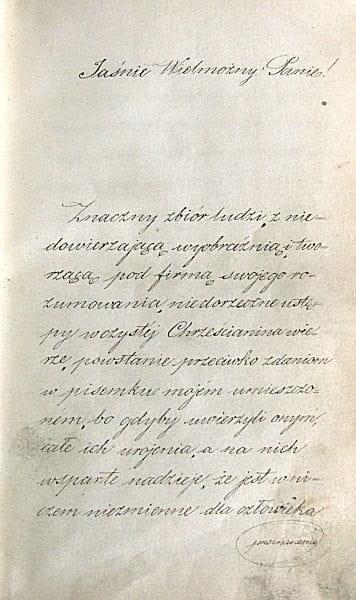 Jaśnie Wielmożny Panie!
Znaczny zbiór ludzi, z nie-
dowierzającą wyobraźnią, i two-
rzącą pod firmą swojego ro-
zumowania, niedorzeczne ustę-
py w czystéj Chrześcianina wie
rze, powstanie przeciwko zdaniom
w pisemku mojem umieszczo-
nem, bo gdyby uwierzyli onym,
całe ich urojenia, a na nich
wsparte nadzieje, że jest w ni-
czem niezmienne dla człowieka